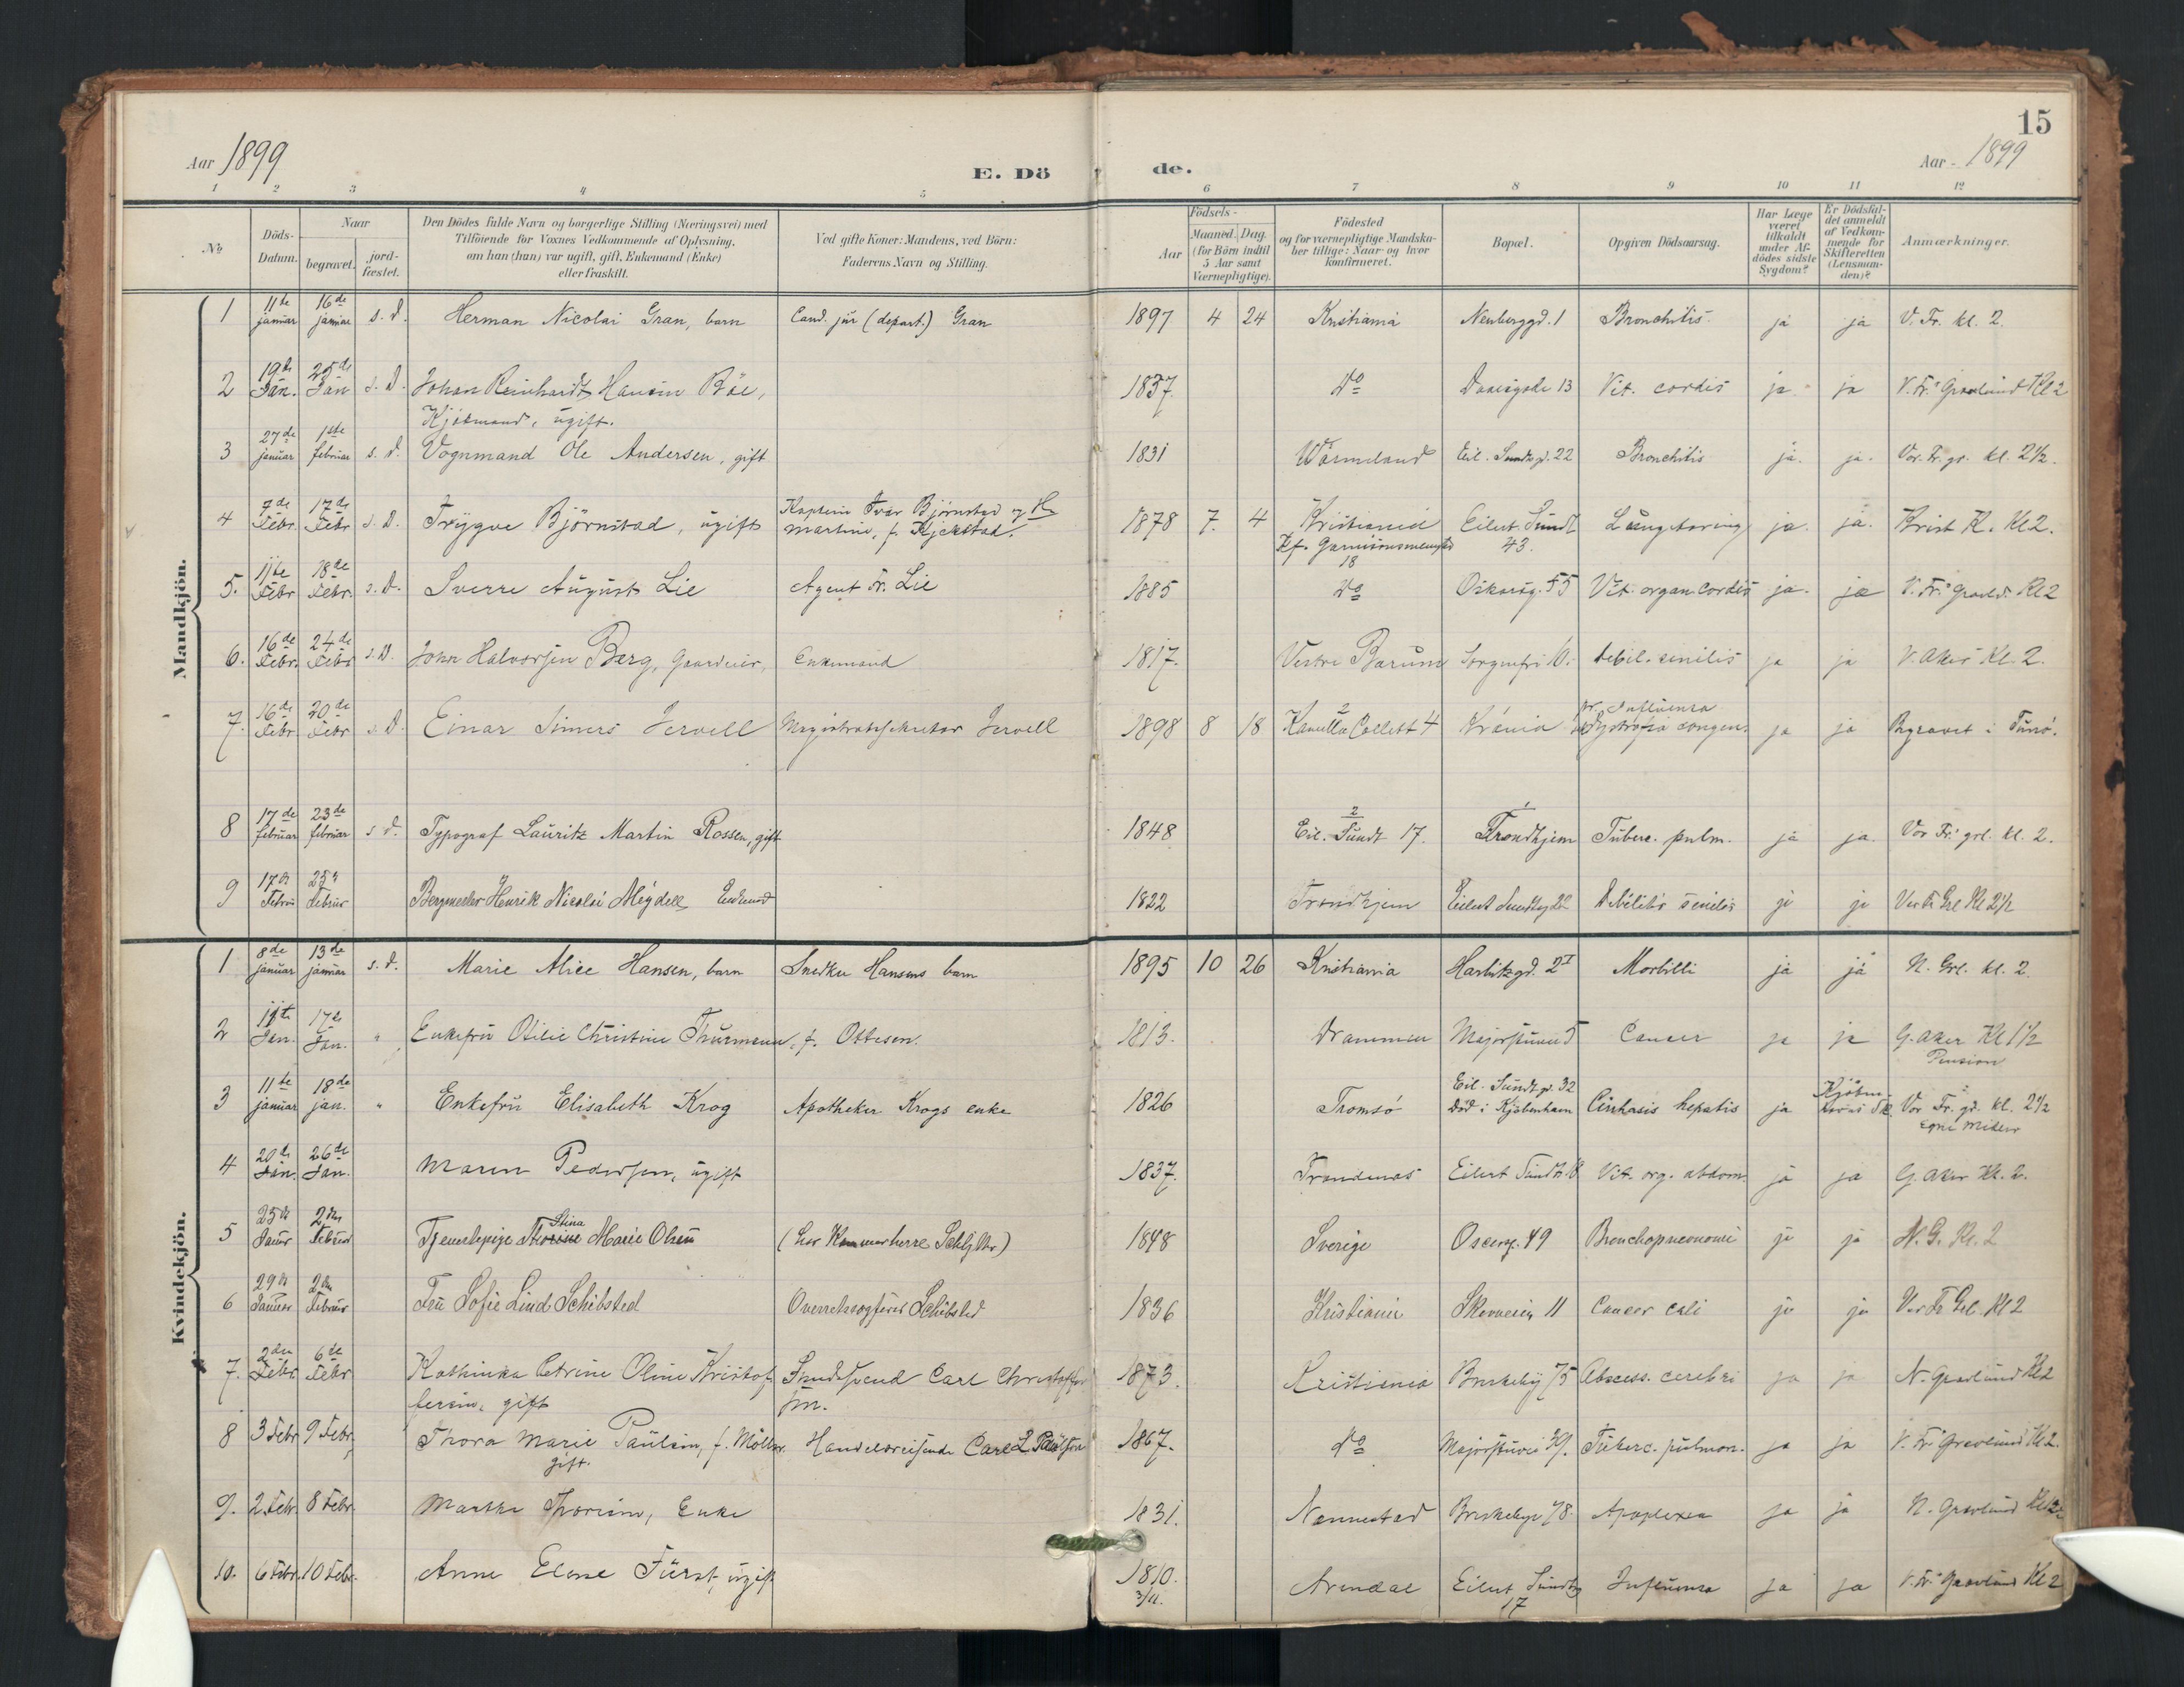 15
Aar 1899
E. Dö de.
Aar - 1899
1 2 3 4 5 6 7 8 9 10 11 12
No.
Döds-Datum.
Naar
begravet.
jord-fæstet.
Den Dödes fulde Navn og borgerlige Stilling (Næringsvei) med
Tilföiende for Voxnes Vedkommende af Oplysning,
om han (hun) var ugift, gift, Enkemand (Enke)
eller fraskilt.
Ved gifte Koner: Mandens, ved Börn:
Faderens Navn og Stilling.
Födsels-
Aar
Maaned. Dag.
(for Börn indtil
5 Aar samt
Værnepligtige).
Födested
og for værnepligtige Mandska-
ber tillige: Naar og hvor
konfirmeret.
Bopæl.
Opgiven Dödsaarsag.
Har Læge
været
tilkaldt
under Af-
dödes sidste
Sygdom?
Er Dödsfal-
det anmeldt
af Vedkom-
mende for
Skifteretten
(Lensman-
den)?
Anmærkninger.
Mandkjön.
1 11te januar 16de januar s. d. Herman Nicolai Gran, barn Cand. jur (depart.) Gran 1897 4 24 Kristiania Neuberggd. 1 Bronchitis ja ja V. Fr. kl. 2.
2 19de Jan. 25de Jan s. D. Johan Reinhardt Hansen Böe, 1837. do 13 Vit. cordis ja ja V. Fr. Gravlund Kl 2
Kjöbmand, ugift.
3 27de januar 1ste februar s. d. Vognmand Ole Andersen, gift 1831 Wärmeland Eil. Sundts gd. 22 Bronchitis ja. ja. Vor. Fr. gr. kl. 2½.
4 9de Febr. 17de Febr s. D. Trygve Björnstad, ugift Kaptein Ivar Björnstad og H 1878 7. 4 Kristiania Eilert Sundt Lungetæring ja. ja. Krist K. Kl 2.
Martine, f. Kjekstad. 43.
18
5. 11te Febr 18de Febr. s. D. Sverre August Lie Agent Fr. Lie 1885 do Oskarsg. 55 Vit. organ. cordis ja. ja V. Fr. Gravld. Kl 2
6. 16de Febr. 24de Febr s. D. John Halvorsen Berg, Gaardeier, Enkemand 1817. Vestre Barum Sorgenfri 10. debil. senilis ja ja V. Aker Kl. 2.
7. 16de Febr 20de Febr s. D. Einar Simers Jervell Magistratssekretær Jervell 1898 8 18 Kamilla Collett 4 Krania Influenza
Dystrofia congen. ja ja Begravet i
8 17de februar 23de februar s. d. Typograf Lauritz Martin Rossen, gift 1848 Eil. Sundt 17. Trondhjem Tuberc. pulm. ja ja Vor Fr. grl. kl. 2.
9 17de 25de Bergmester Henrik Nicolai Migdell Enkemand 1822 Trondhjem Eilert Sundtsg 22 Debilitis senilis ja ja Vor Fr Grl Kl 2½
Kvindekjön.
1 8de januar 13de januar s. d. Marie Alice Hansen, barn Snedker Hansens barn 1895 10 26 Kristiania Harbitzgd. 2I Morbilli ja ja N. Grl. kl. 2.
2 11te Jan. 17de Jan. " Enkefru Otilie Christine Thurmann, f. Ottesen. 1813. Drammen Majorstuvei 5 Cancer ja ja G. Aker Kl 1½
Pension
3 11te januar 18de jan. " Enkefru Elisabeth Krog Apotheker Krogs enke 1826 Tromsö Eil. Sundt gd. 32
Död i Kjöbenhavn Cirrhosis hepatis ja Vor Fr. gd. kl. 2½
Egne Midler
4 20de Jan. 26de Jan. Maren Pedersen, ugift 1837. Trondenæs Eilert Sundts. 8 Vit. org. abdom. ja ja G. Aker Kl. 2.
5 25de 2den Tjenestepige Stina Marie Olsen (hos Kammerherre) 1848 Sverige Oscarsg. 49 Bronchopneumoni ja ja N. G. Kl. 2
6 29de Januar 2den Februar Fru Sofie Lind Schibsted Overretssagförer Schibsted 1836 Kristiania Skovveien 11 Cancer coli ja ja Vor Fr Grl. Kl 2
7. 2den Febr 6de Febr Kathinka Petrine Oline Kristof- Carl Christoffer 1873. Kristiania Briskeby 75 Abscess. cerebri ja ja N. Gravlund Kl 2
fersen, gift sen.
8 3 Febr 9 Febr. Thora Marie Paulsen, f. Möller. Handelsreisende Carl L Paulsen 1867. do Majorstuvei 39. Tuberc. pulmon. ja ja V. Fr. Gravlund Kl 2.
gift.
9. 2 Febr. 8 Febr. Marthe Thoresen, Enke 1831. Nannestad Briskebyv 78. Apoplexia ja ja N. Gravlund Kl 2
10. 6 Febr. 10 Febr. Anne Elene Fürst, ugift 1810. Arendal Eilert Sundtsg Influenza ja ja V. Fr. Gravlund Kl 2
3/11. 17